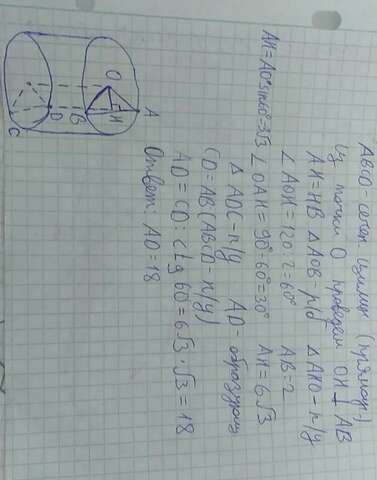 ABCD - сечен. цилин. (прямоуг.)
Из точки O проведем OH ⊥ AB
AH = HB △AOB - р/б △AHO - п/у
∠AOH = 120 : 2 = 60° AB = ?
AH = AO · sin60 = 3√3 ∠OAH = 90° - 60° = 30° AH = 6√3
△ADC - п/у AD - образующ
CD = AB (ABCD - п/у)
AD = CD : ctg 60 = 6√3 · √3 = 18
Ответ: AD = 18
A
O
H
B
D
C